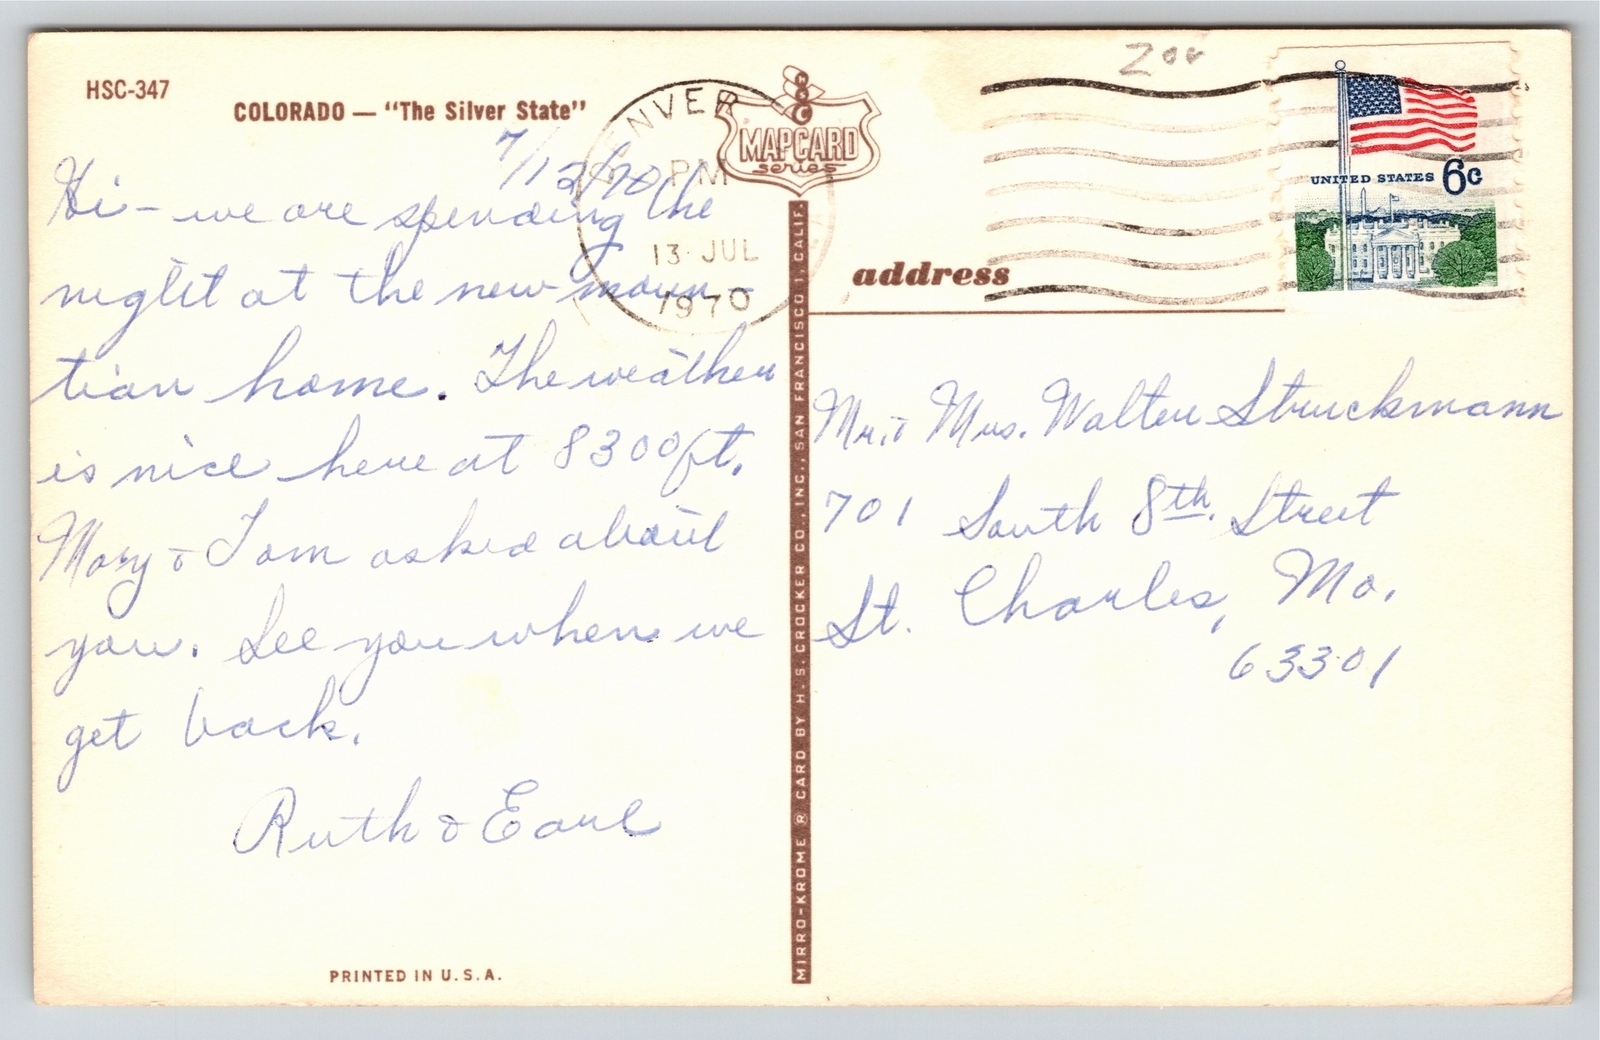 HSC-347
COLORADO — "The Silver State"
7/12/70
Hi - we are spending the
night at the new moun-
tian home. The weather
is nice here at 8300 ft.
Mary & Tom asked about
you. See you when we
get back.
Ruth & Earl
PRINTED IN U.S.A.
MIRRO-KROME ® CARD BY H.S. CROCKER CO., INC., SAN FRANCISCO 1, CALIF.
HSC
MAPCARD
series
DENVER
PM
13 JUL
1970
200
UNITED STATES 6c
address
Mr. & Mrs. Walter Struckmann
701 South 8th. Street
St. Charles, Mo.
63301